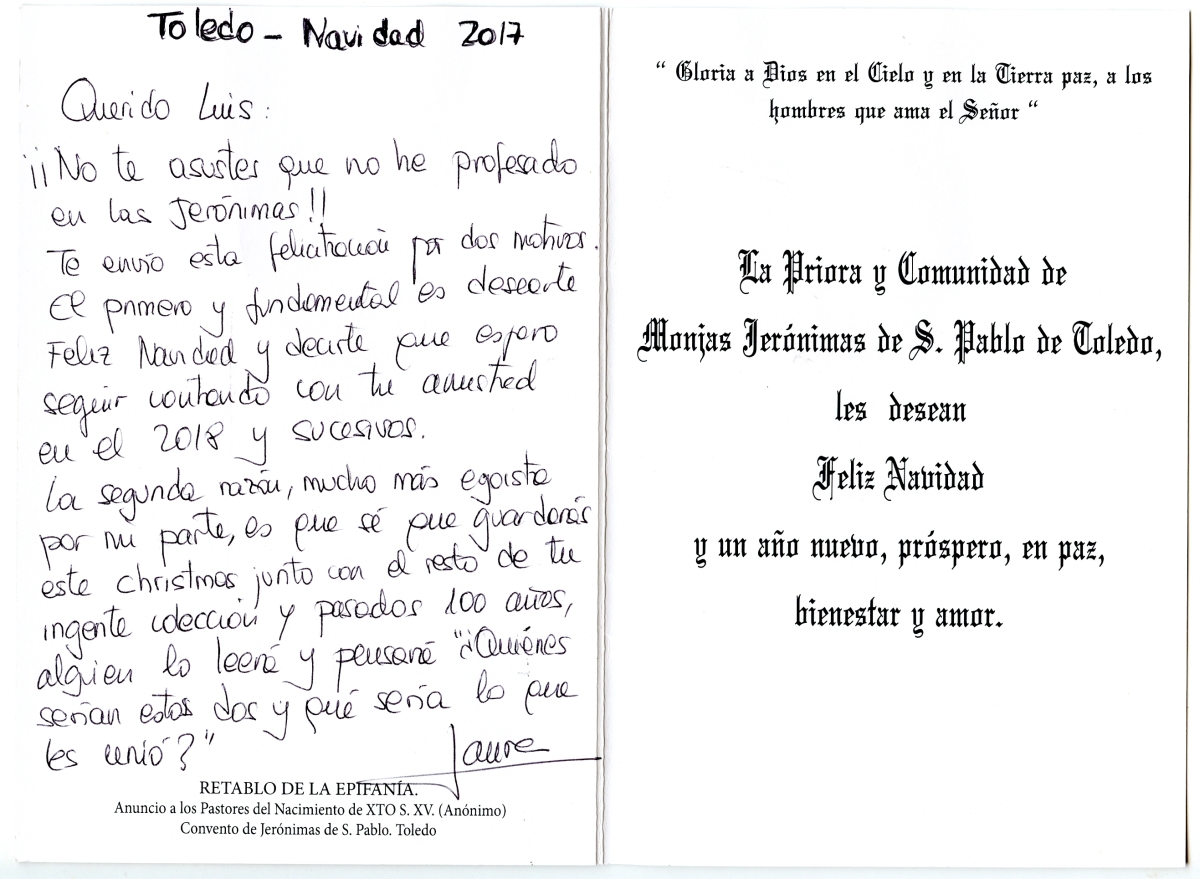 Toledo - Navidad 2017
Querido Luis:
¡¡No te asustes que no he profesado
en las Jerónimas!!
Te envío esta felicitación por dos motivos.
El primero y fundamental es desearte
Feliz Navidad y decirte que espero
seguir contando con tu amistad
en el 2018 y sucesivos.
La segunda razón, mucho más egoista
por mi parte, es que sé que guardarás
este christmas junto con el resto de tu
ingente colección y pasados 100 años,
alguien lo leerá y pensará "¿Quiénes
serían estos dos y qué sería lo que
les unió?"
Laura
RETABLO DE LA EPIFANÍA.
Anuncio a los Pastores del Nacimiento de XTO S. XV. (Anónimo)
Convento de Jerónimas de S. Pablo. Toledo
“ Gloria a Dios en el Cielo y en la Tierra paz, a los
hombres que ama el Señor “
La Priora y Comunidad de
Monjas Jerónimas de S. Pablo de Toledo,
les desean
Feliz Navidad
y un año nuevo, próspero, en paz,
bienestar y amor.